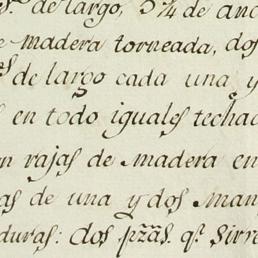 de largo, 3¼ de anc
e madera torneada, dos
de largo cada una y
s en todo iguales techad
n rajas de madera en
as de una y dos man
duras: dos pzãs. qe. sirve